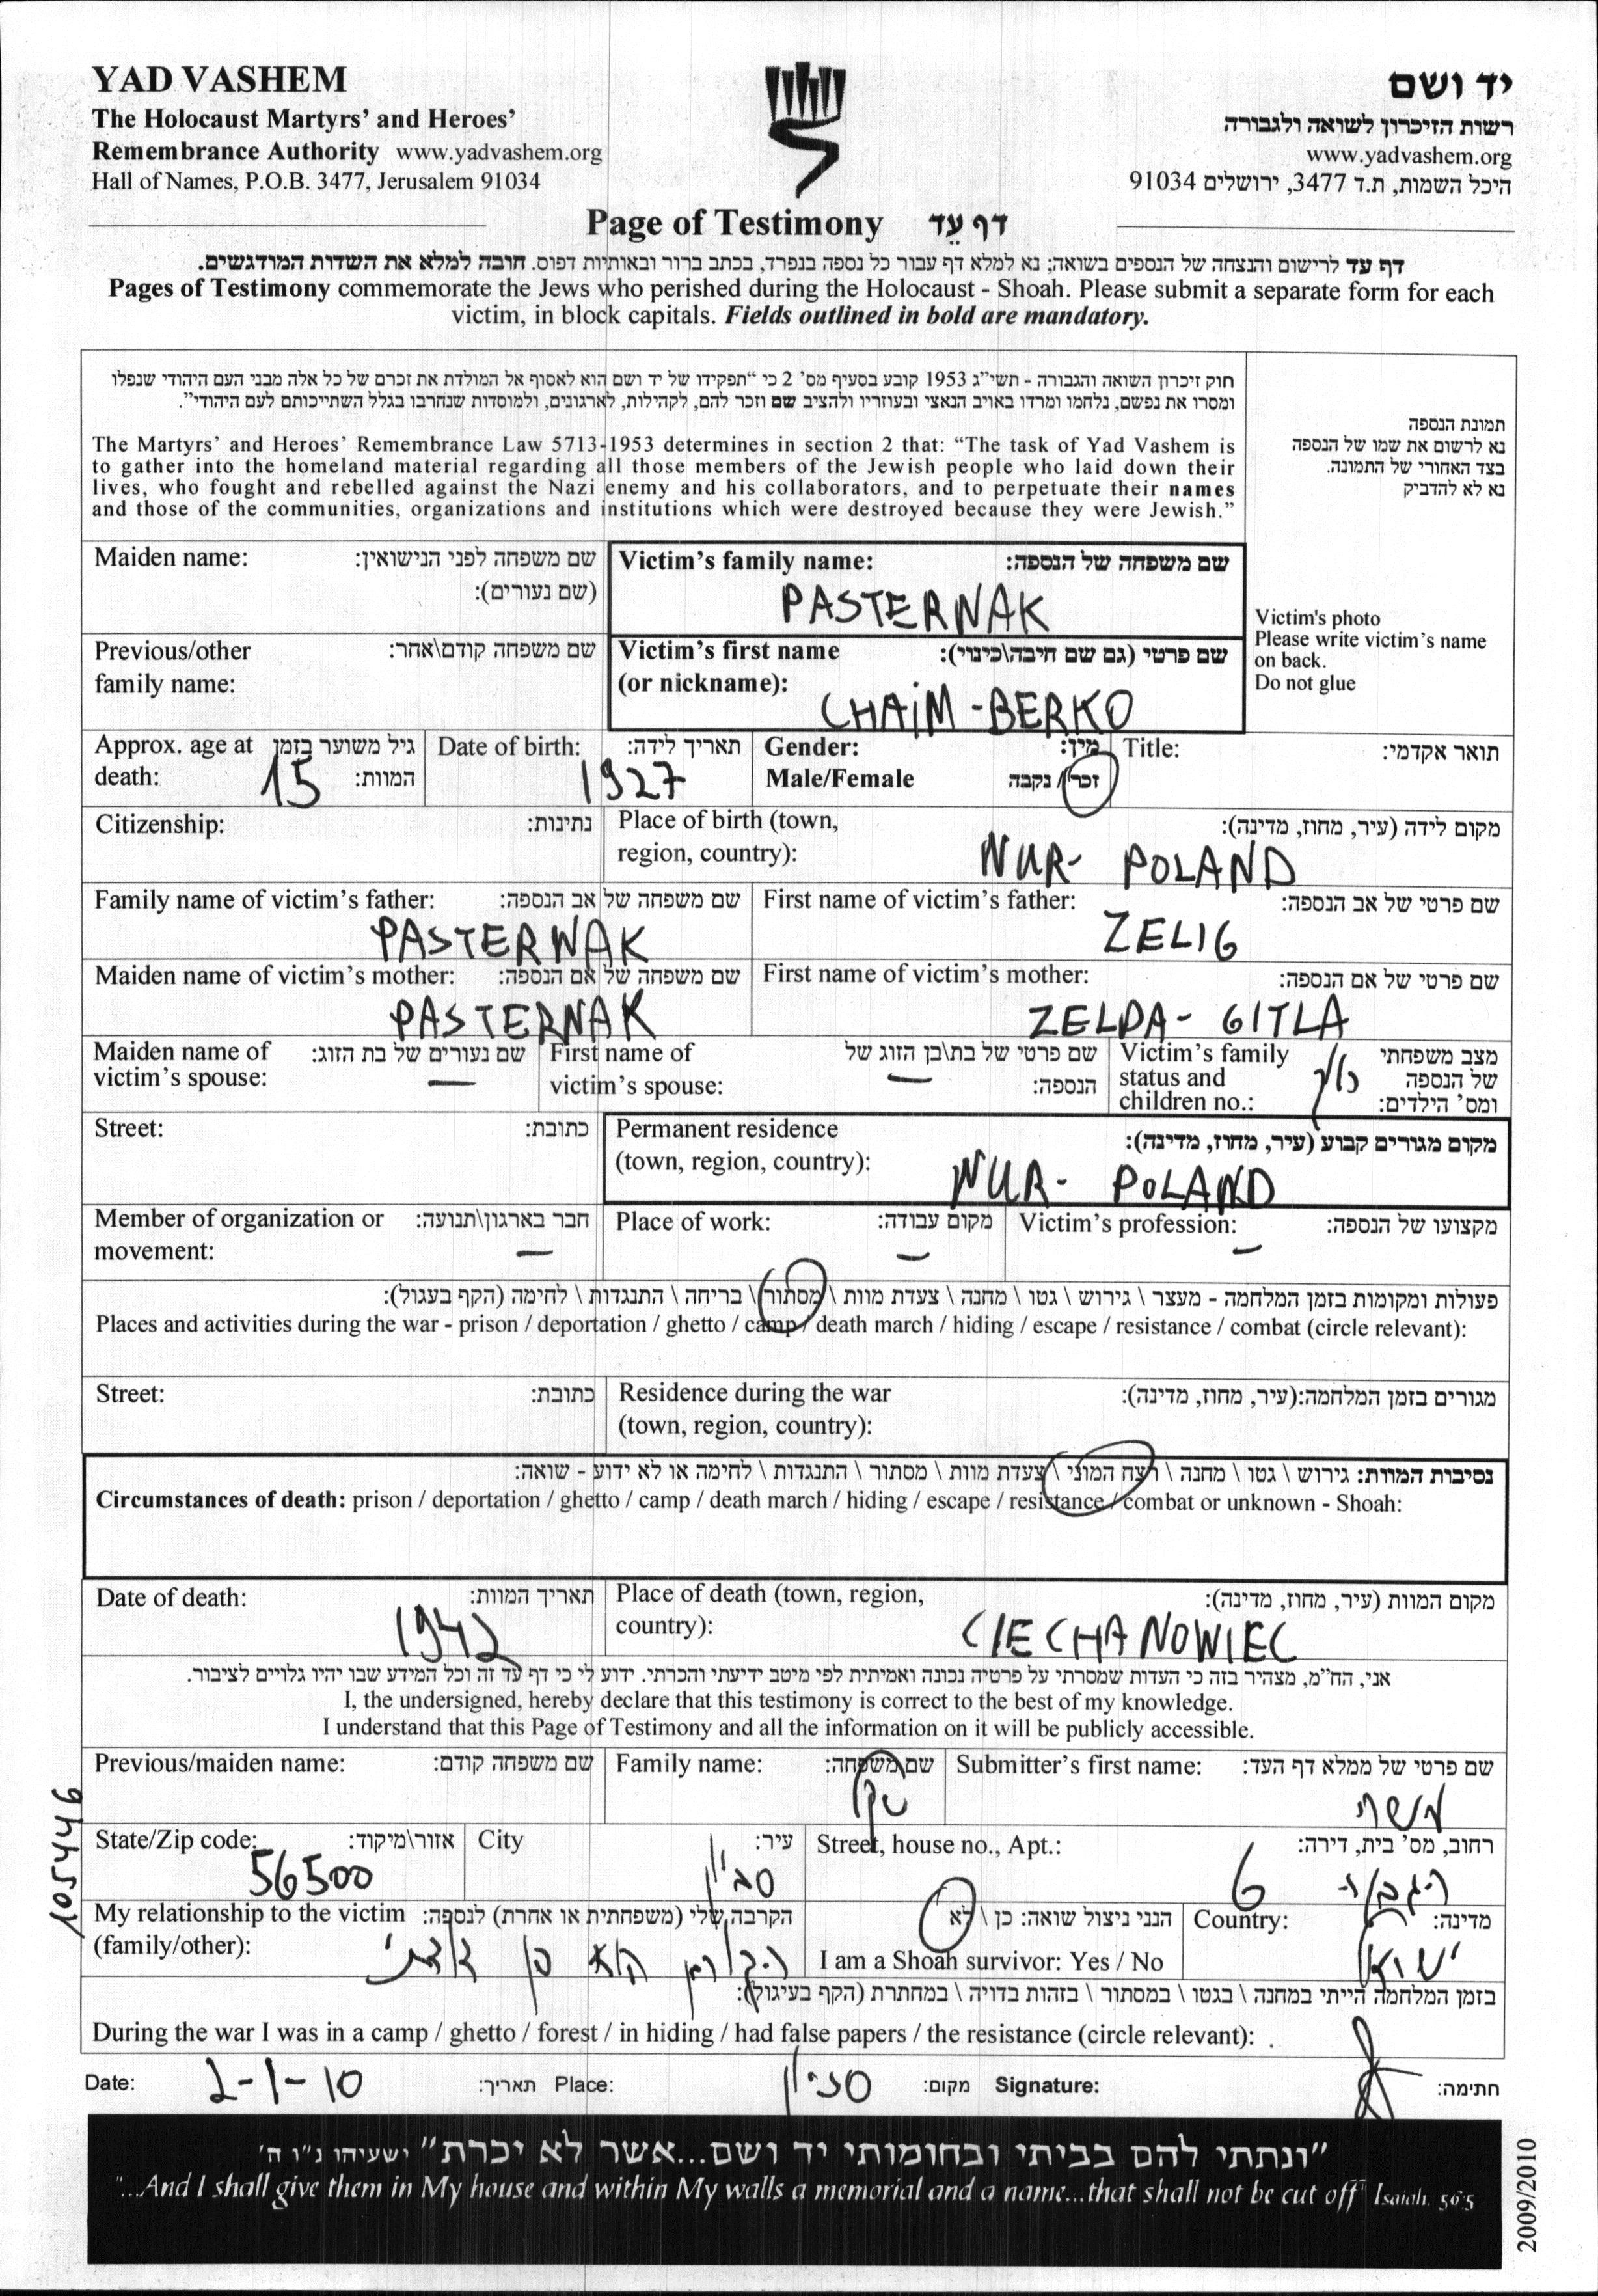 YAD VASHEM
The Holocaust Martyrs' and Heroes'
Remembrance Authority www.yadvashem.org
Hall of Names, P.O.B. 3477, Jerusalem 91034
יד ושם
רשות הזיכרון לשואה ולגבורה
www.yadvashem.org
היכל השמות, ת.ד 3477, ירושלים 91034
Page of Testimony דף עֵד
דף עד לרישום והנצחה של הנספים בשואה; נא למלא דף עבור כל נספה בנפרד, בכתב ברור ובאותיות דפוס. חובה למלא את השדות המודגשים.
Pages of Testimony commemorate the Jews who perished during the Holocaust - Shoah. Please submit a separate form for each
victim, in block capitals. Fields outlined in bold are mandatory.
חוק זיכרון השואה והגבורה - תשי"ג 1953 קובע בסעיף מס' 2 כי "תפקידו של יד ושם הוא לאסוף אל המולדת את זכרם של כל אלה מבני העם היהודי שנפלו
ומסרו את נפשם, נלחמו ומרדו באויב הנאצי ובעוזריו ולהציב שם וזכר להם, לקהילות, לארגונים, ולמוסדות שנחרבו בגלל השתייכותם לעם היהודי".
The Martyrs' and Heroes' Remembrance Law 5713-1953 determines in section 2 that: "The task of Yad Vashem is
to gather into the homeland material regarding all those members of the Jewish people who laid down their
lives, who fought and rebelled against the Nazi enemy and his collaborators, and to perpetuate their names
and those of the communities, organizations and institutions which were destroyed because they were Jewish."
תמונת הנספה
נא לרשום את שמו של הנספה
בצד האחורי של התמונה.
נא לא להדביק
Victim's photo
Please write victim's name
on back.
Do not glue
Maiden name: שם משפחה לפני הנישואין:
(שם נעורים):
Victim's family name: שם משפחה של הנספה:
PASTERNAK
Previous/other שם משפחה קודם\אחר:
family name:
Victim's first name שם פרטי (גם שם חיבה\כינוי):
(or nickname):
CHAIM-BERKO
Approx. age at גיל משוער בזמן
death: 15 המוות:
Date of birth: תאריך לידה:
1927
Gender: מין:
Male/Female זכר / נקבה
Title: תואר אקדמי:
Citizenship: נתינות:
Place of birth (town, מקום לידה (עיר, מחוז, מדינה):
region, country): NUR- POLAND
Family name of victim's father: שם משפחה של אב הנספה:
PASTERNAK
First name of victim's father: שם פרטי של אב הנספה:
ZELIG
Maiden name of victim's mother: שם משפחה של אם הנספה:
PASTERNAK
First name of victim's mother: שם פרטי של אם הנספה:
ZELDA- GITLA
Maiden name of שם נעורים של בת הזוג:
victim's spouse: —
First name of שם פרטי של בת\בן הזוג של
victim's spouse: — הנספה:
Victim's family מצב משפחתי
status and של הנספה
children no.: ומס' הילדים:
Street: כתובת:
Permanent residence מקום מגורים קבוע (עיר, מחוז, מדינה):
(town, region, country): NUR- POLAND
Member of organization or חבר בארגון\תנועה:
movement: —
Place of work: מקום עבודה:
—
Victim's profession: מקצועו של הנספה:
—
פעולות ומקומות בזמן המלחמה - מעצר \ גירוש \ גטו \ מחנה \ צעדת מוות \ מסתור \ בריחה \ התנגדות \ לחימה (הקף בעגול):
Places and activities during the war - prison / deportation / ghetto / camp / death march / hiding / escape / resistance / combat (circle relevant):
Street: כתובת:
Residence during the war מגורים בזמן המלחמה:(עיר, מחוז, מדינה):
(town, region, country):
נסיבות המוות: גירוש \ גטו \ מחנה \ רצח המוני \ צעדת מוות \ מסתור \ התנגדות \ לחימה או לא ידוע - שואה:
Circumstances of death: prison / deportation / ghetto / camp / death march / hiding / escape / resistance / combat or unknown - Shoah:
Date of death: תאריך המוות:
1942
Place of death (town, region, מקום המוות (עיר, מחוז, מדינה):
country): CIECHANOWIEC
אני, הח"מ, מצהיר בזה כי העדות שמסרתי על פרטיה נכונה ואמיתית לפי מיטב ידיעתי והכרתי. ידוע לי כי דף עד זה וכל המידע שבו יהיו גלויים לציבור.
I, the undersigned, hereby declare that this testimony is correct to the best of my knowledge.
I understand that this Page of Testimony and all the information on it will be publicly accessible.
Previous/maiden name: שם משפחה קודם:
Family name: שם משפחה:
Submitter's first name: שם פרטי של ממלא דף העד:
State/Zip code: אזור\מיקוד:
56500
City עיר:
סביון
Street, house no., Apt.: רחוב, מס' בית, דירה:
6
My relationship to the victim הקרבה שלי (משפחתית או אחרת) לנספה:
(family/other): הקורבן הוא בן דודתי
הנני ניצול שואה: כן \ לא
I am a Shoah survivor: Yes / No
Country: מדינה:
ישראל
בזמן המלחמה הייתי במחנה \ בגטו \ במסתור \ בזהות בדויה \ במחתרת (הקף בעיגול):
During the war I was in a camp / ghetto / forest / in hiding / had false papers / the resistance (circle relevant):
Date: 2-1-10 תאריך: Place: סביון מקום: Signature: חתימה:
"ונתתי להם בביתי ובחומותי יד ושם...אשר לא יכרת" ישעיהו נ"ו ה'
"...And I shall give them in My house and within My walls a memorial and a name...that shall not be cut off" Isaiah, 56:5
105446
2009/2010